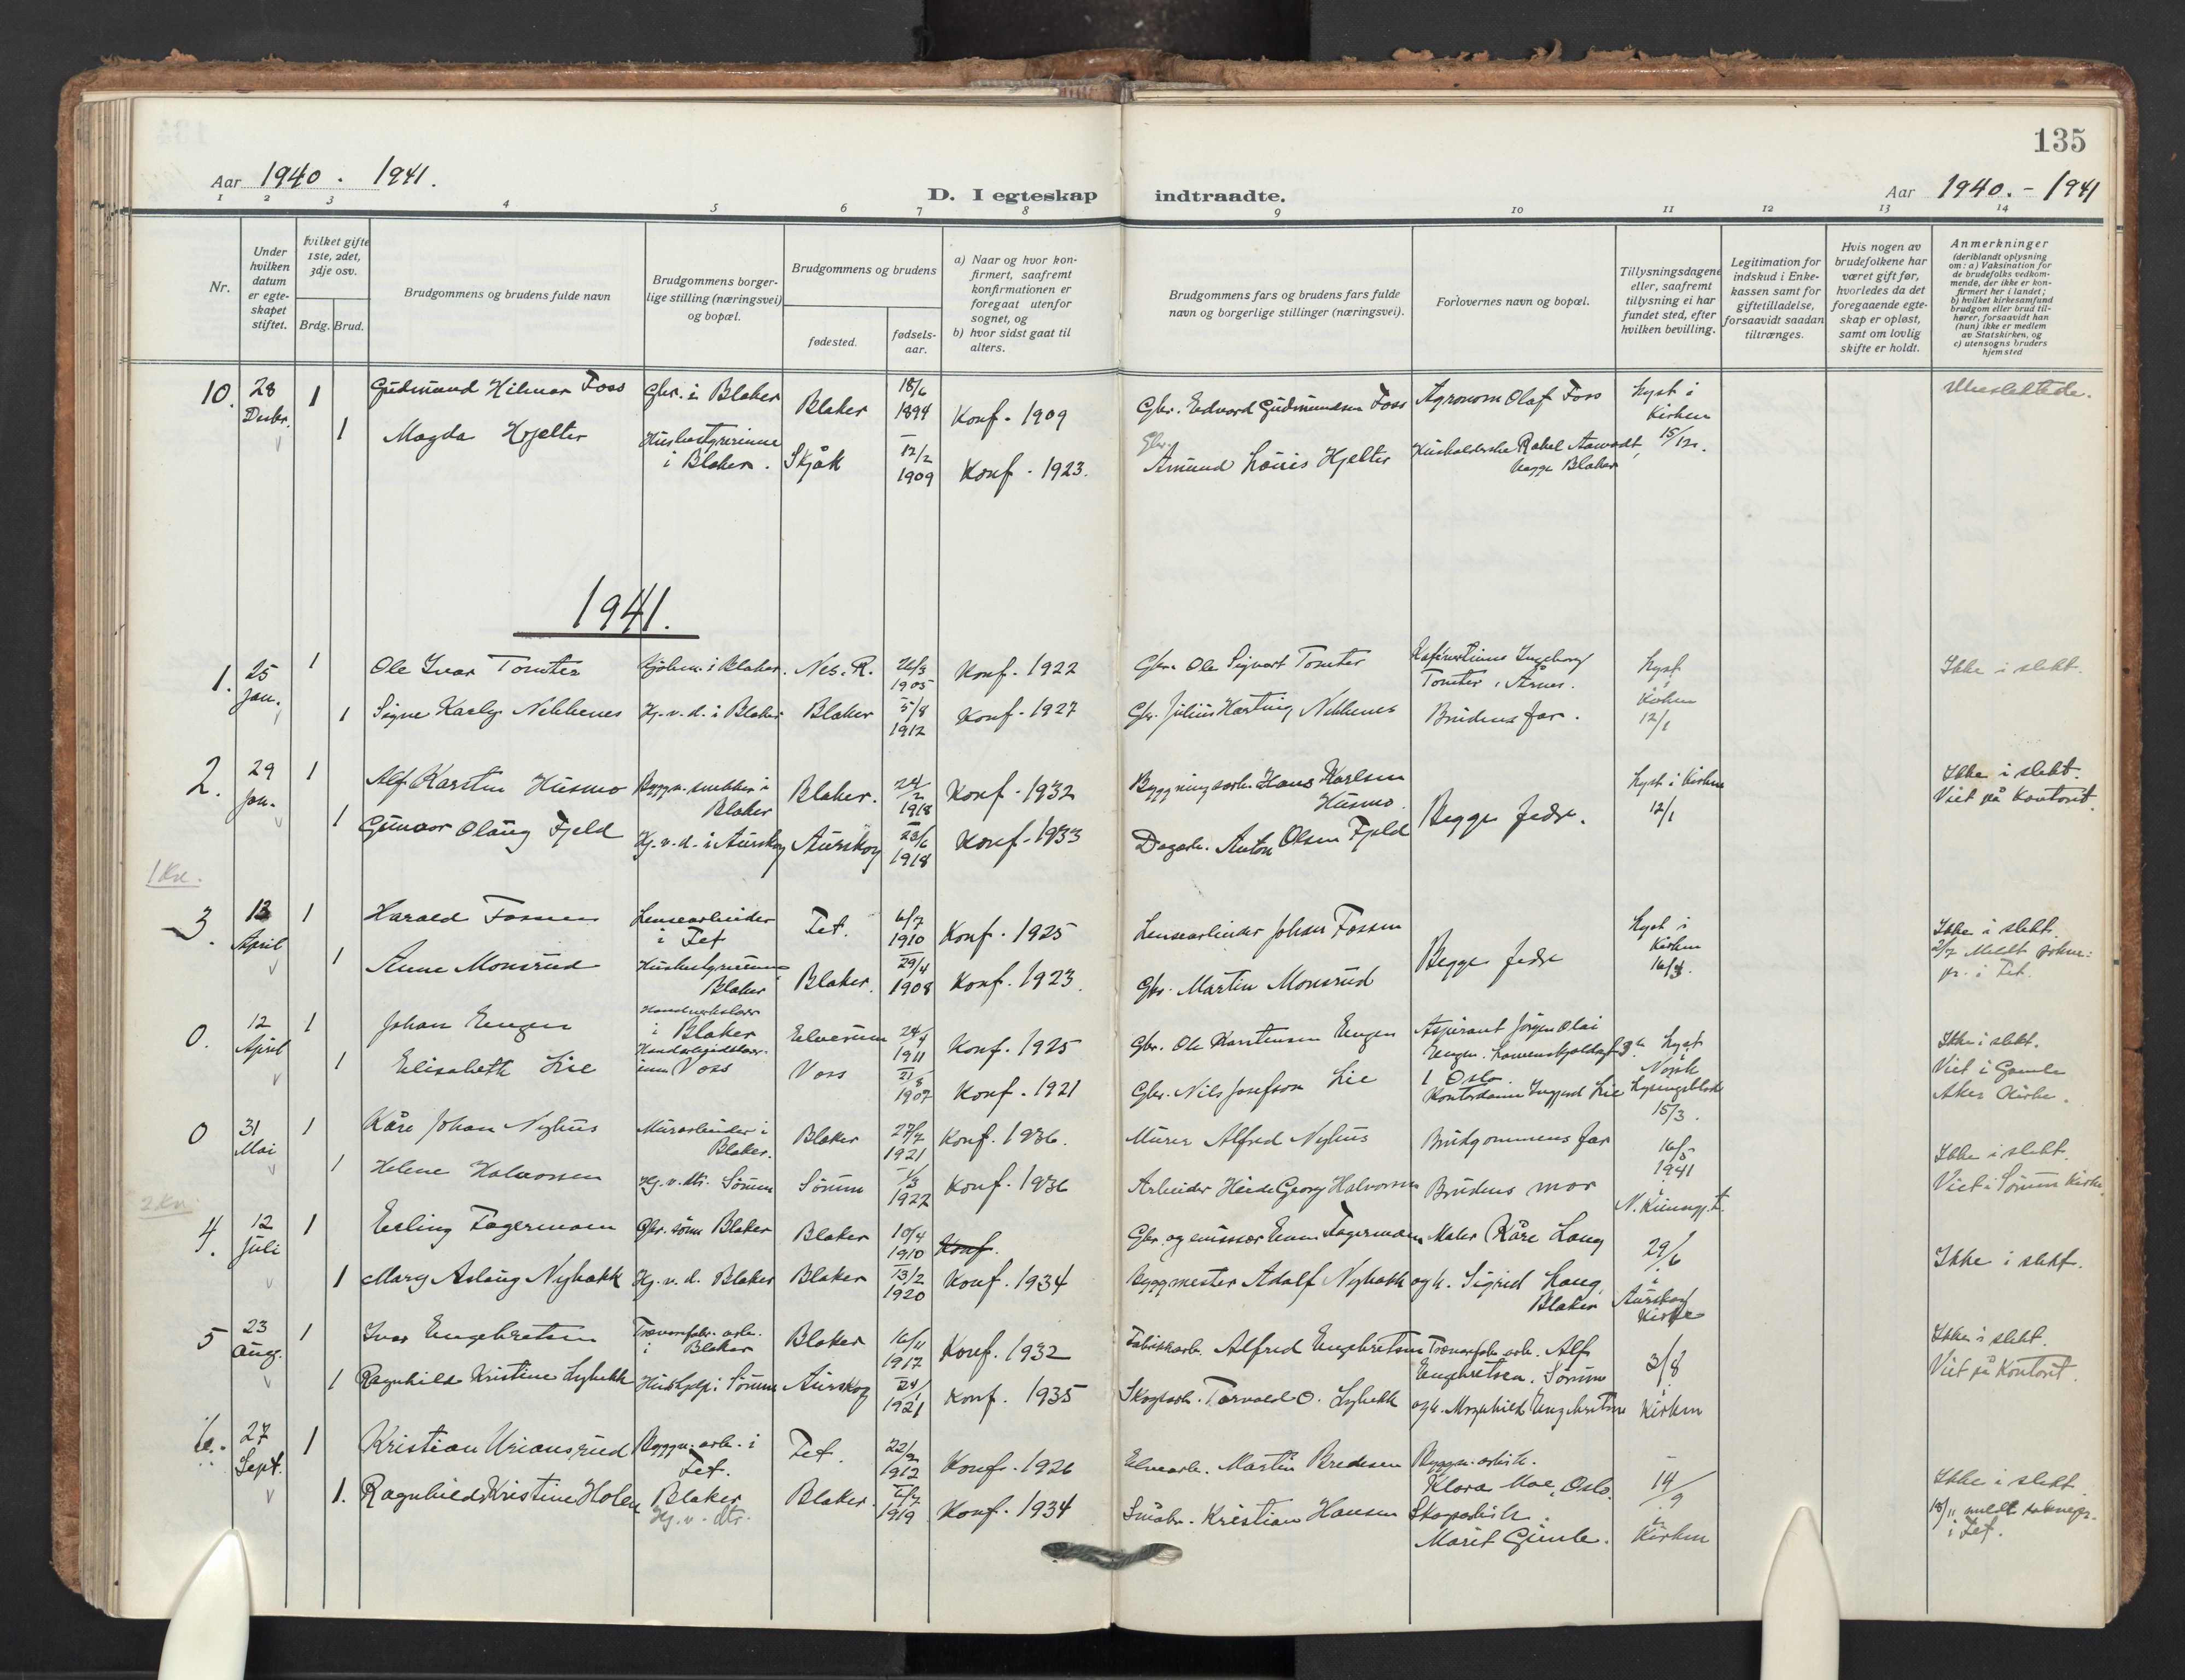 135
Aar 1940. 1941.
D. I egteskap indtraadte.
Aar 1940. - 1941
1 2 3 4 5 6 7 8 9 10 11 12 13 14
Nr.
Under hvilken datum er egteskapet stiftet.
Hvilket gifte 1ste, 2det, 3dje osv.
Brdg. Brud.
Brudgommens og brudens fulde navn
Brudgommens borgerlige stilling (næringsvei) og bopæl.
Brudgommens og brudens
fødested.
fødselsaar.
a) Naar og hvor konfirmert, saafremt konfirmationen er foregaat utenfor sognet, og
b) hvor sidst gaat til alters.
Brudgommens fars og brudens fars fulde navn og borgerlige stillinger (næringsvei).
Forlovernes navn og bopæl.
Tillysningsdagene eller, saafremt tillysning ei har fundet sted, efter hvilken bevilling.
Legitimation for indskud i Enkekassen samt for giftetilladelse, forsaavidt saadan tiltrænges.
Hvis nogen av brudefolkene har været gift før, hvorledes da det foregaaende egteskap er opløst, samt om lovlig skifte er holdt.
Anmerkninger (deriblandt oplysning om: a) Vaksination for de brudefolks vedkommende, der ikke er konfirmert her i landet; b) hvilket kirkesamfund brudgom eller brud tilhører, forsaavidt han (hun) ikke er medlem av Statskirken, og c) utensogns bruders hjemsted
10. 28 Desbr. 1 Gudmund Hilmar Foss Gbr. i Blaker Blaker 18/6 1894 Konf. 1909 Gbr. Edvard Gudmundsen Foss Agronom Olaf Foss Lyst i Kirken 15/12.
1 Magda Hjelter i Blaker. Skjåk 12/2 1909 Konf. 1923. Gbr. Amund Louis Hjelter Husholderske Rakel begge Blaker
1941.
1. 25 Jan. 1 Ole Ivar Tomter i Blaker. Nes. R. 26/3 1905 Konf. 1922 Gbr. Ole Sigvart Tomter Ingeborg Tomter, Årnes. Lyst i Kirken 12/1 Ikke i slekt.
1 Signe Karly Nebbenes Hj.v.d. i Blaker Blaker 5/8 1912 Konf. 1927 Gbr. Julius Hartvig Nebbenes Brudens far.
2. 29 Jan. 1 Alf Karsten Husmo Byggn. snekker i Blaker Blaker. 24/2 1918 Konf. 1932 Byggningsarb. Hans Karlsen Husmo Begge fedre. Lyst i Kirken 12/1 Ikke i slekt. Viet på Kontoret.
1 Gunvor Olaug Fjeld Hj.v.d. i Aurskog Aurskog 23/6 1918 Konf. 1933 Dagarb. Anton Olsen Fjeld
1 Kv.
3. 13 April 1 Harald Fossen Lensearbeider i Fet Fet. 6/7 1910 Konf. 1925 Lensearbeider Johan Fossen Begge fedre Lyst i Kirken 16/3. Ikke i slekt. 2/7 Meldt sokne- pr. i Fet.
1 Anne Monsrud Blaker Blaker. 29/4 1908 Konf. 1923. Gbr. Martin Monsrud
0. 12 April 1 Johan Engen i Blaker Elverum 24/4 1911 Konf. 1925 Gbr. Ole Karstensen Engen Aspirant Jørgen Olai Engen. Løvenskjoldsgt 3 Oslo. Lyst Norsk Lysingsblad 15/3. Ikke i slekt. Viet i Gamle Aker Kirke.
1 Elisabeth Lie Voss Voss 1907 Konf. 1921 Gbr. Nils Josefson Lie Kontordame Lie
0 31 Mai 1 Kåre Johan Nyhus Murarbeider i Blaker. Blaker 27/2 1921 Konf. 1936. Murer Alfred Nyhus Brudgommens far 16/5 1941 N. Kunngj.t. Ikke i slekt. Viet i Sørum Kirke.
1 Helene Halvorsen Hj.v.dtr. Sørum Sørum 1/3 1922 Konf. 1936 Arbeider Georg Halvorsen Brudens mor
2 Kv.
4. 12 Juli 1 Erling Fagermoen Gbr. sønn Blaker Blaker 10/4 1910 Konf. Gbr. og emissær Fagermoen Maler Kåre Haug 29/6 i Aurskog Kirke Ikke i slekt.
1 Mary Aslaug Nybakk Hj.v.d. Blaker Blaker 13/2 1920 Konf. 1934 Byggmester Adolf Nybakk og h. Sigrid Haug Blaker
5 23 Aug. 1 Ivar Engebretsen Trævarefabr. arb. i Blaker Blaker 16/11 1917 Konf. 1932 Fabrikkarb. Alfred Engebretsen Trævarefabr. arb. Alf Engebretsen. Sørum 3/8 i Kirken Ikke i slekt. Viet på Kontoret.
1 Ragnhild Kristine Lybekk Hushjelp i Sørum Aurskog 24/1 1921 Konf. 1935 Skogsarb. Torvald O. Lybekk og h. Magnhild Engebretsen
6. 27 Sept. 1 Kristian Uriansrud Byggn. arb. i Fet. Fet. 22/2 1912 Konf. 1926 Elvearb. Martin Bredesen Byggn. arb. h. Klara Moe, Oslo. 14/9 i Kirken Ikke i slekt. 18/11 meldt soknepr. i Fet.
1. Ragnhild Kristine Holen Blaker Hj.v.dtr. Blaker. 6/7 1919 Konf. 1934 Småbr. Kristian Hansen Skogsarb. h. Marit Gimle.